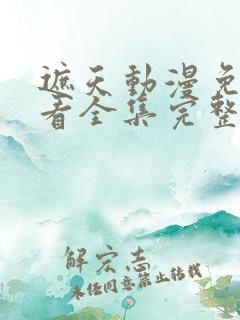 遮天動漫免
看全集完整
解宏志
未经同意禁止转载